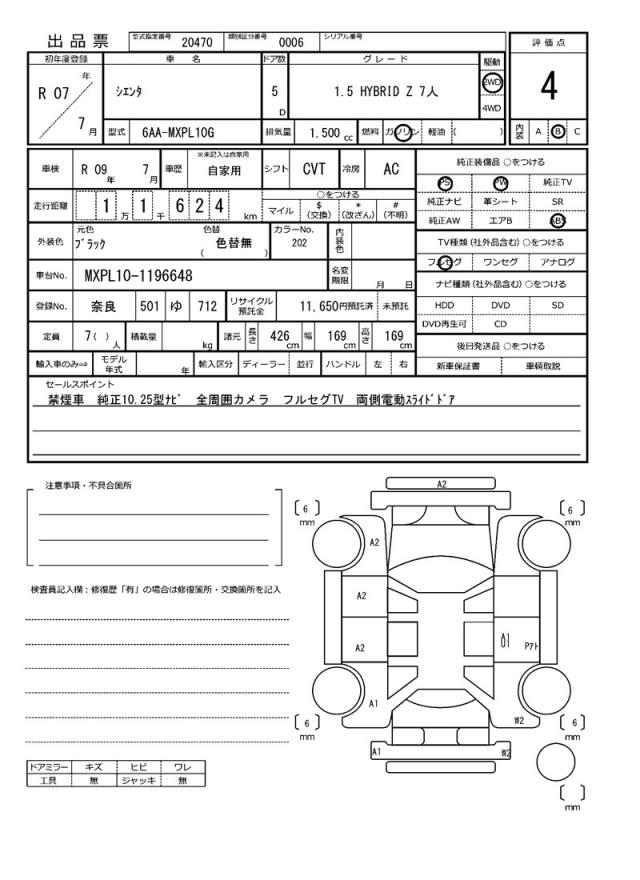 出品票 型式指定番号 20470 類別区分番号 0006 シリアル番号
評価点
4
内装 A B C
初年度登録 車名 ドア数 グレード 駆動
R 07 年 7 月 シエンタ 5 D 1.5 HYBRID Z 7人 2WD 4WD
型式 6AA-MXPL10G 排気量 1,500 cc 燃料 ガソリン 軽油 ( )
車検 R 09 年 7 月 車歴 ※未記入は自家用 自家用 シフト CVT 冷房 AC
走行距離 1 万 1 千 6 2 4 km ○をつける マイル $(交換) *(改ざん) #(不明)
外装色 元色 ブラック 色替 ( 色替無 ) カラーNo. 202 内装色
車台No. MXPL10-1196648 名変期限 月 日
登録No. 奈良 501 ゆ 712 リサイクル預託金 11,650円預託済 未預託
定員 7( ) 人 積載量 kg 諸元 長さ 426 cm 幅 169 cm 高さ 169 cm
輸入車のみ⇒ モデル年式 年 輸入区分 ディーラー 並行 ハンドル 左 右
純正装備品 ○をつける
PS PW 純正TV
純正ナビ 革シート SR
純正AW エアB ABS
TV種類 (社外品含む) ○をつける
フルセグ ワンセグ アナログ
ナビ種類 (社外品含む) ○をつける
HDD DVD SD
DVD再生可 CD
後日発送品 ○をつける
新車保証書 車輌取説
セールスポイント
禁煙車 純正10.25型ナビ 全周囲カメラ フルセグTV 両側電動スライドドア
注意事項・不具合箇所
検査員記入欄：修復歴「有」の場合は修復箇所・交換箇所を記入
ドアミラー キズ ヒビ ワレ
工具 無 ジャッキ 無
A2
[ 6 ] mm
[ 6 ] mm
A2
A2
A2
A1
Pアト
A1
W2
[ 6 ] mm
[ 6 ] mm
A1
W2
[ ] mm